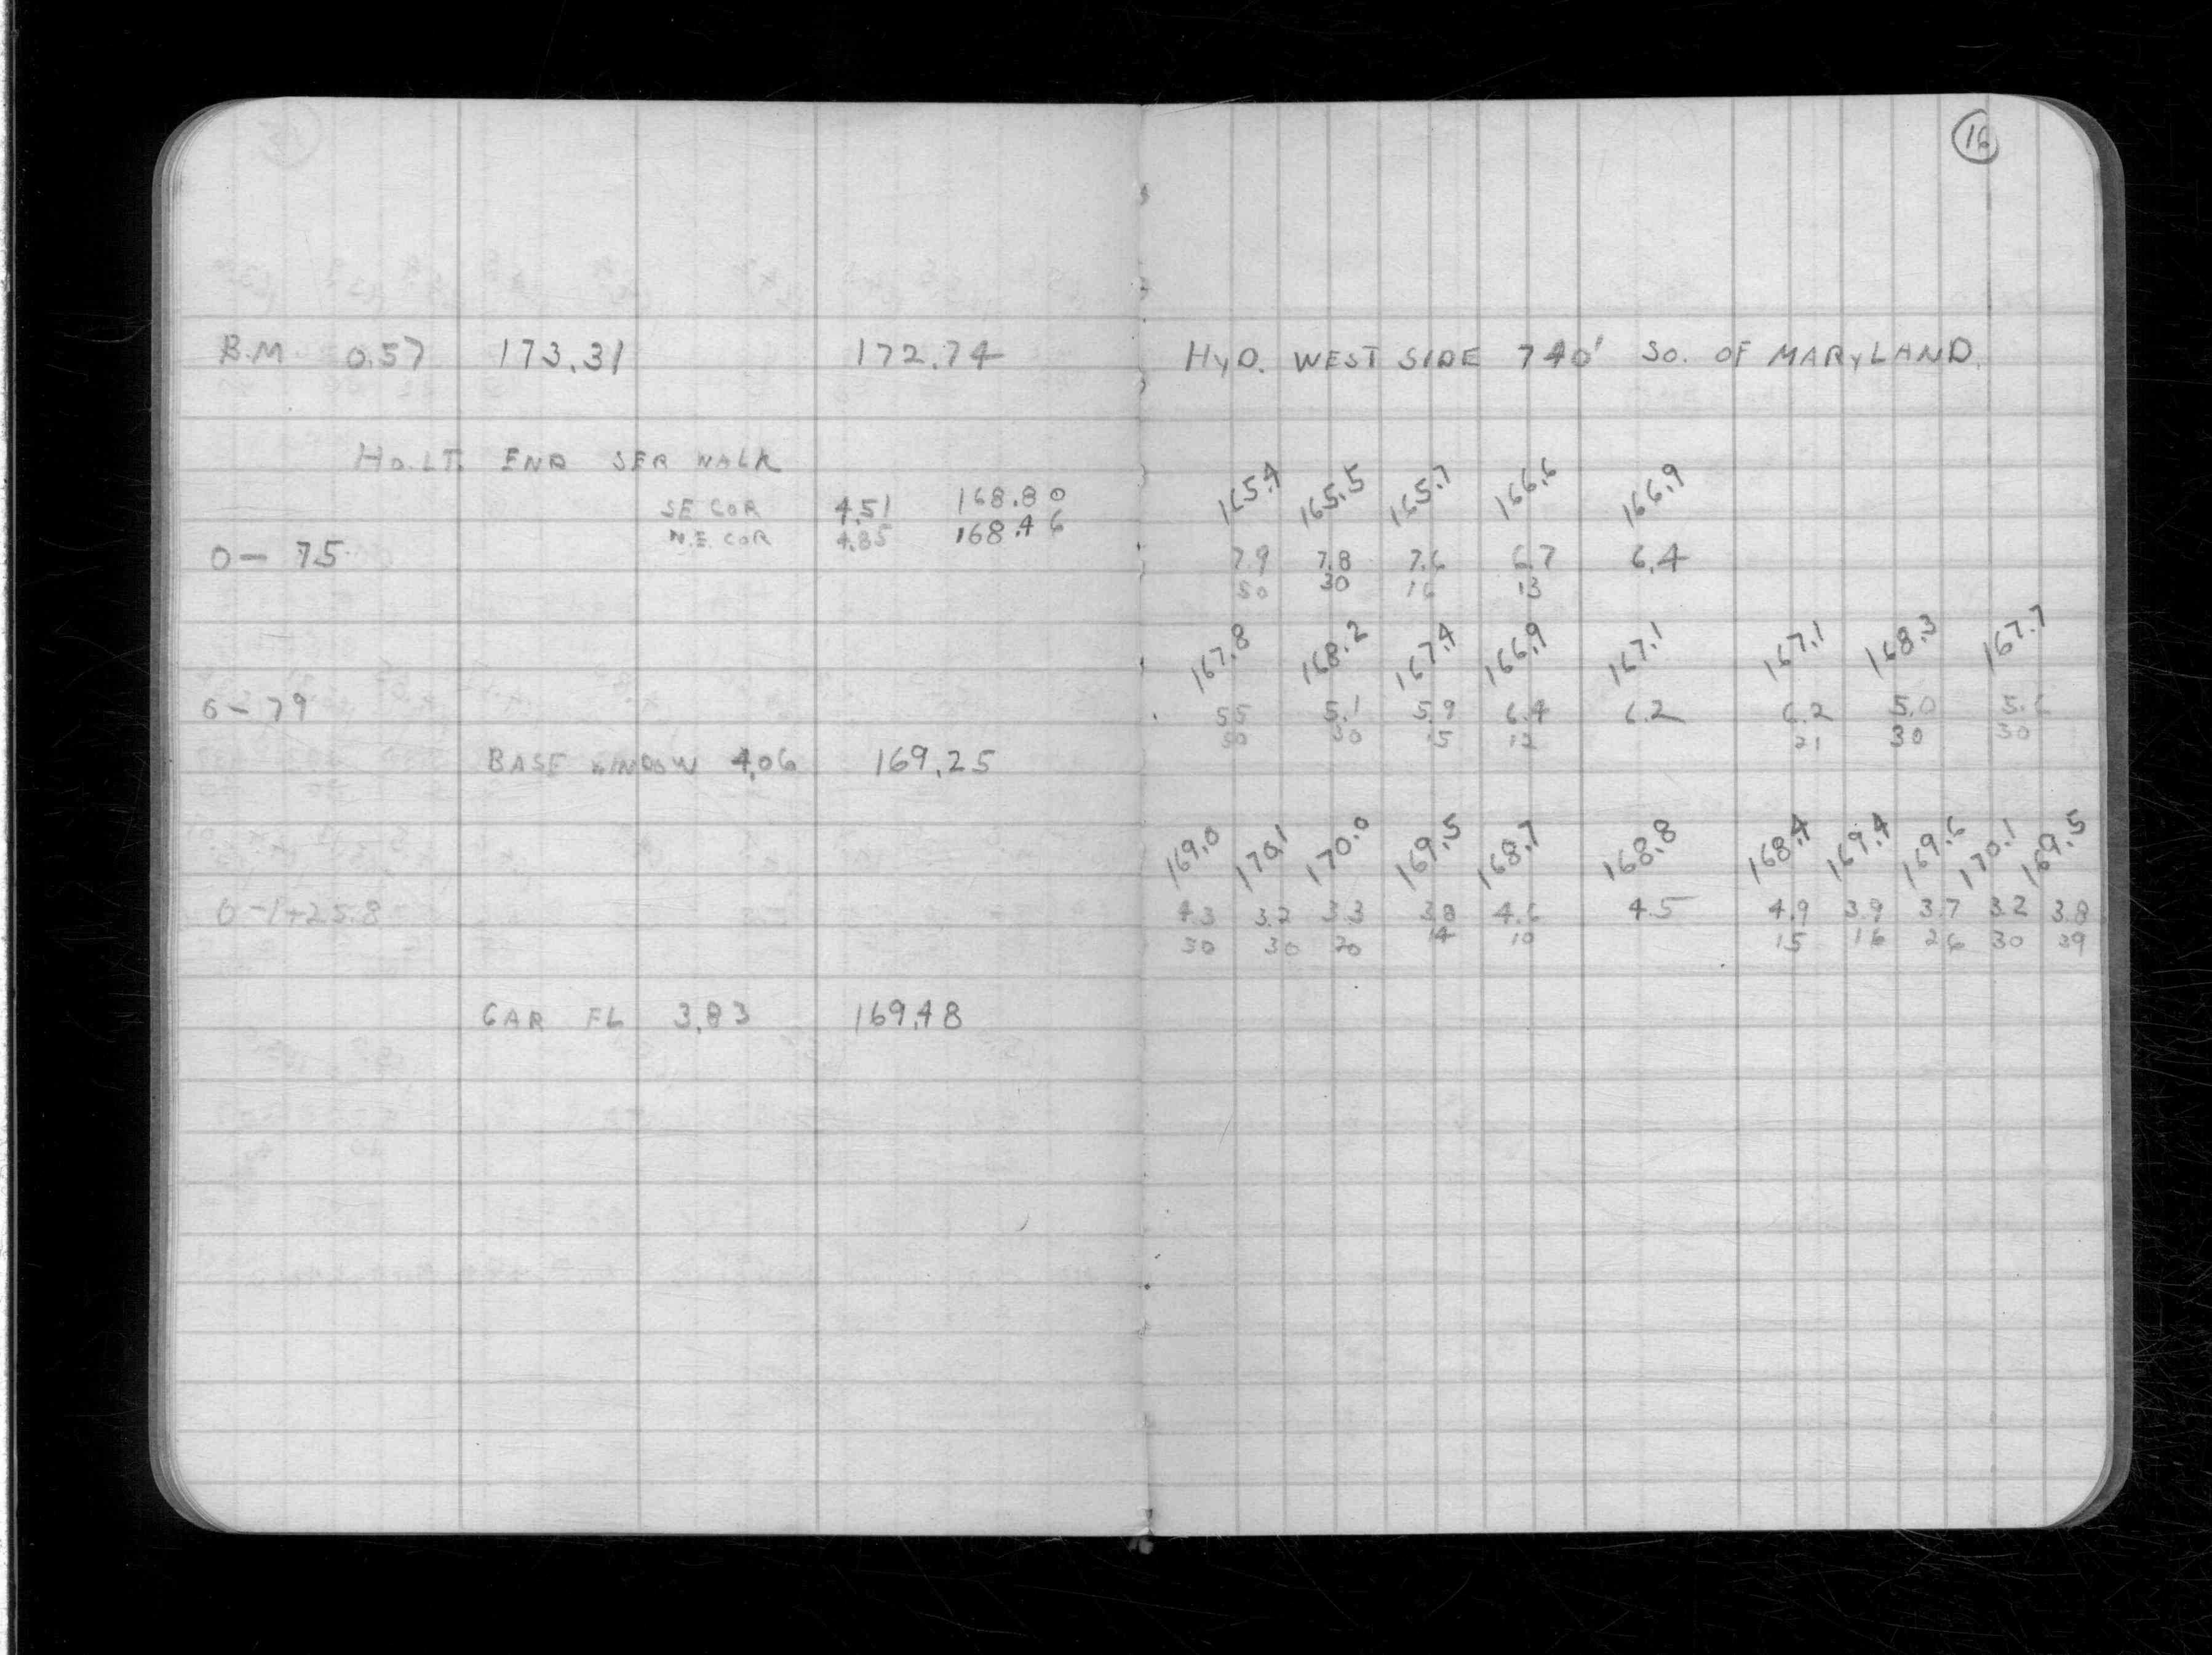 16
B.M. 0.57 173.31 172.74 HYD. WEST SIDE 740' SO. OF MARYLAND.
HO. LT. END SER WALK
165.4 165.5 165.7 166.6 166.9
SE COR 4.51 168.80
N.E. COR 4.85 168.46
0 - 75 7.9 7.8 7.6 6.7 6.4
50 30 16 13
167.8 168.2 167.4 166.9 167.1 167.1 168.3 167.7
0 - 79 5.5 5.1 5.9 6.4 6.2 6.2 5.0 5.6
50 30 15 12 21 30 50
BASE WINDOW 4.06 169.25
169.0 170.1 170.0 169.5 168.7 168.8 168.4 169.4 169.6 170.1 169.5
0 - 1+25.8 4.3 3.2 3.3 3.8 4.6 4.5 4.9 3.9 3.7 3.2 3.8
50 30 20 14 10 15 16 26 30 39
GAR FL 3.83 169.48